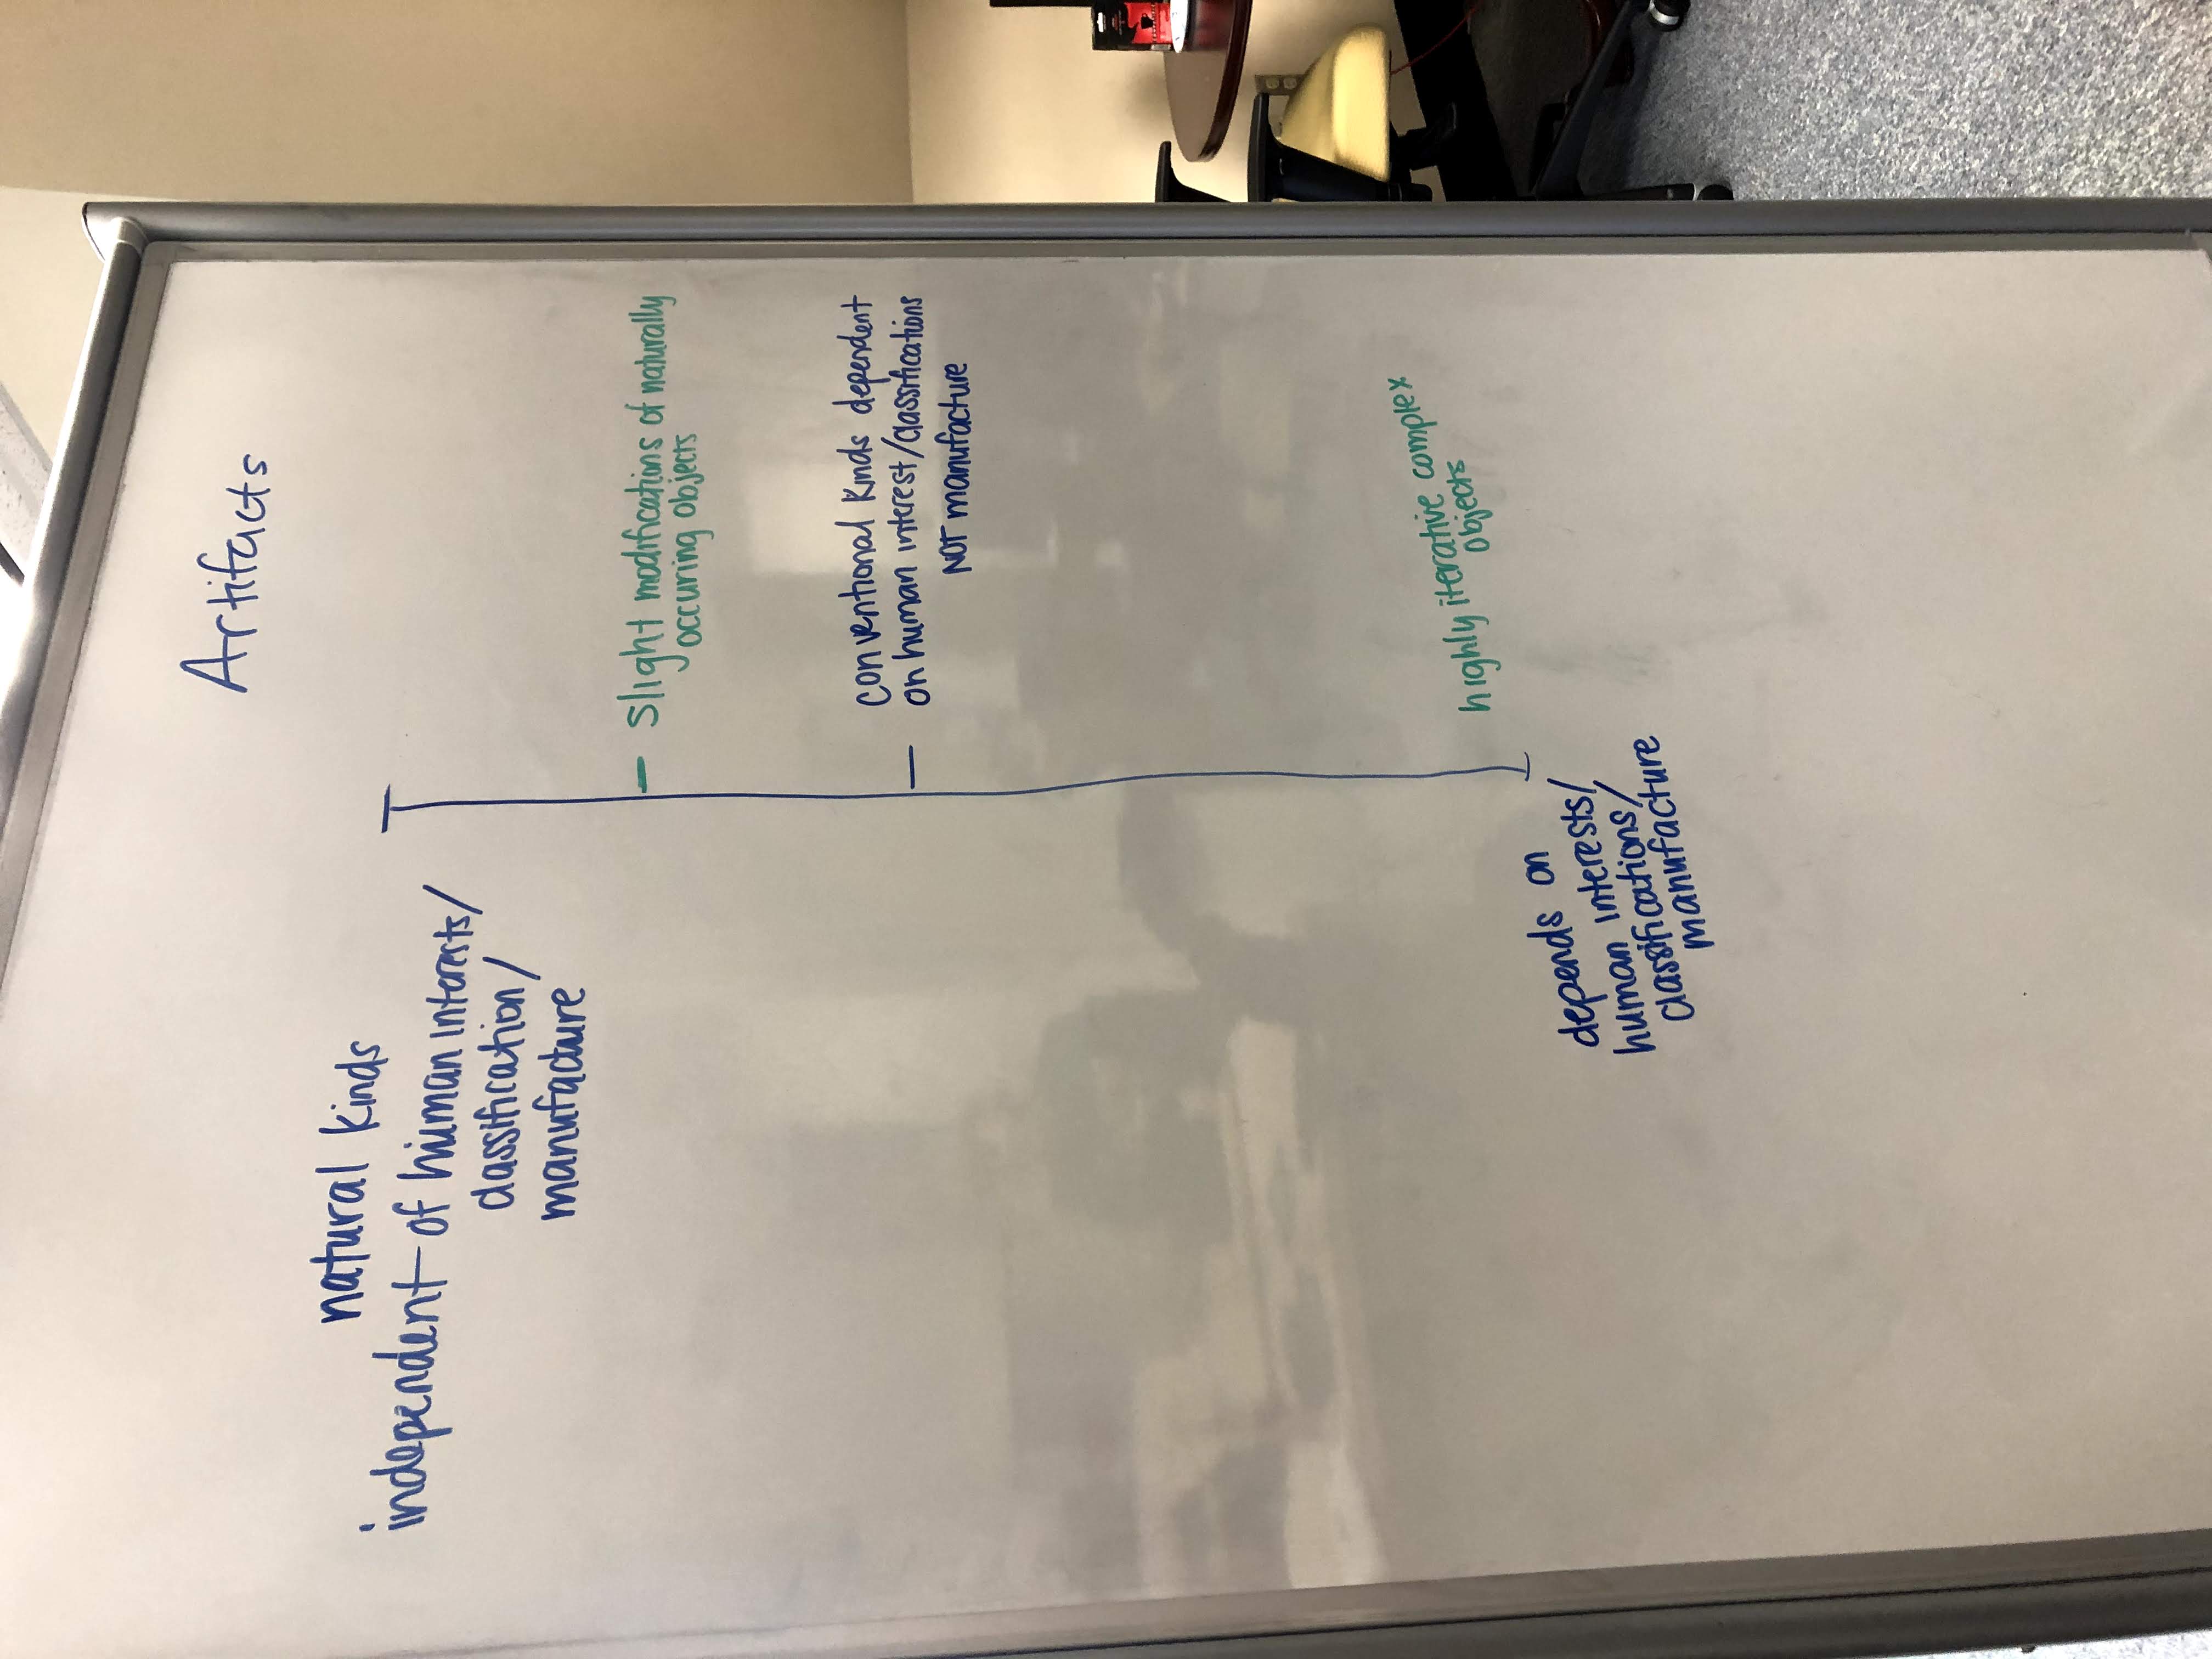 Artifacts
natural kinds
independent of human interests/
classification/
manufacture
slight modifications of naturally
occuring objects
conventional kinds dependent
on human interest/classifications
NOT manufacture
highly iterative complex
objects
depends on
human interests/
classifications/
manufacture